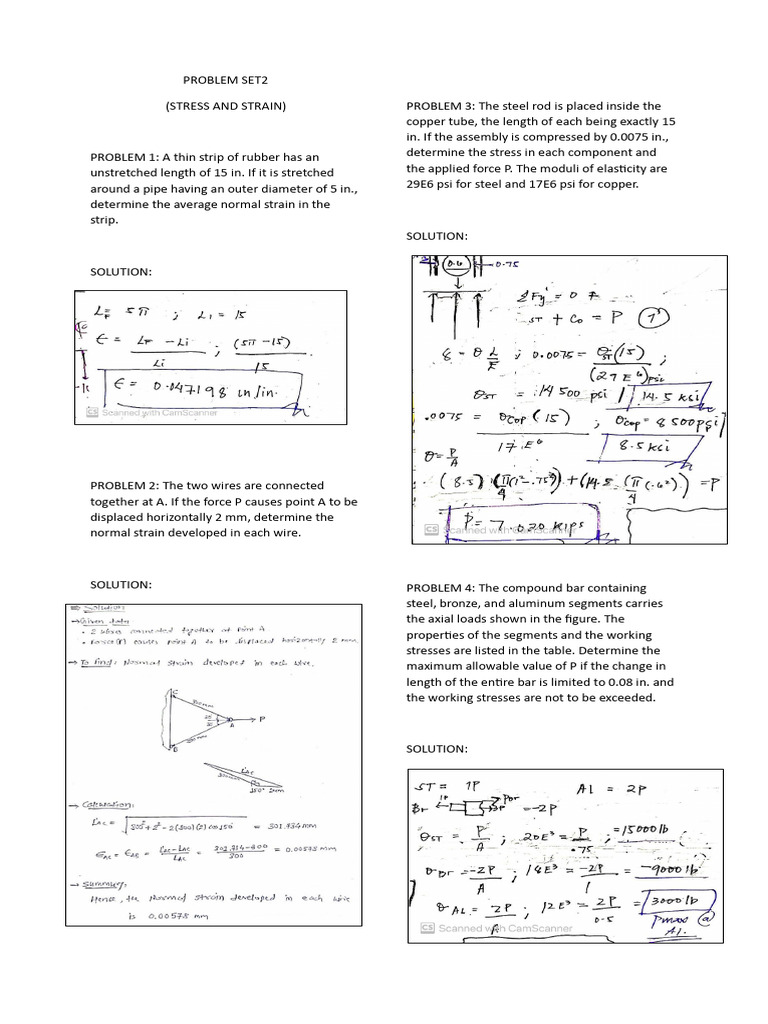 PROBLEM SET2
(STRESS AND STRAIN)
PROBLEM 1: A thin strip of rubber has an
unstretched length of 15 in. If it is stretched
around a pipe having an outer diameter of 5 in.,
determine the average normal strain in the
strip.
SOLUTION:
LF = 5π ; Li = 15
ϵ = LF - Li / Li ; (5π - 15) / 15
ϵ = 0.047198 in/in.
CS Scanned with CamScanner
PROBLEM 2: The two wires are connected
together at A. If the force P causes point A to be
displaced horizontally 2 mm, determine the
normal strain developed in each wire.
SOLUTION:
Solution:
→ Given data
• 2 wires connected together at Point A
• Force(P) causes point A to be displaced horizontally 2 mm.
→ To find: Normal strain developed in each wire.
C
300mm
30
30
A
P
300mm
B
L'AC
300mm
150° 2mm
→ Calculation:
L'AC = √300² + 2² - 2(300)(2) cos150° = 301.734mm
ϵAC = ϵAB = L'AC - LAC / LAC = 301.734 - 300 / 300 = 0.00578 mm
→ Summary:
Hence, the Normal strain developed in each wire
is 0.00578 mm
PROBLEM 3: The steel rod is placed inside the
copper tube, the length of each being exactly 15
in. If the assembly is compressed by 0.0075 in.,
determine the stress in each component and
the applied force P. The moduli of elasticity are
29E6 psi for steel and 17E6 psi for copper.
SOLUTION:
0.6 0.75
ΣFy = 0
ST + Co = P 1
δ = σ L/E ; 0.0075 = σST(15) / (29E6)psi ;
σST = 14 500 psi / 14.5 ksi
.0075 = σcop(15) / 17.E6 ; σcop = 8 500psi / 8.5 ksi
σ = P/A
(8.5) (π(1²-.75²)/4) + (14.5 (π/4 (.6²)) = P
P = 7.020 kips
CS Scanned with CamScanner
PROBLEM 4: The compound bar containing
steel, bronze, and aluminum segments carries
the axial loads shown in the figure. The
properties of the segments and the working
stresses are listed in the table. Determine the
maximum allowable value of P if the change in
length of the entire bar is limited to 0.08 in. and
the working stresses are not to be exceeded.
SOLUTION:
ST = 1P AL = 2P
Br PBr = -2P
σST = P/A ; 20E3 = P/.75 ; = 15000 lb
σBr = -2P/A ; 18E3 = -2P/1 = -9000 lb
σAL = 2P/A ; 12E3 = 2P/0.5 = 3000 lb
Pmax @
AL.
CS Scanned with CamScanner